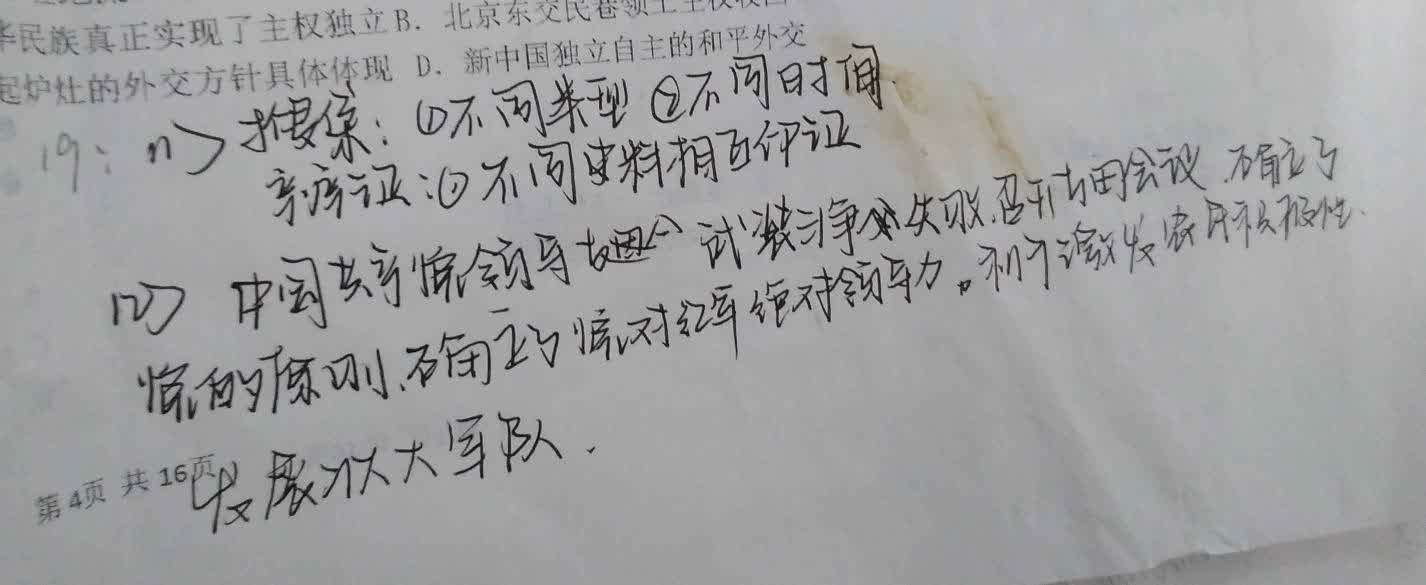 华民族真正实现了主权独立B. 北京东交民巷领土主权收回
起炉灶的外交方针具体体现 D. 新中国独立自主的和平外交
19: (1) 搜集: ①不同类型 ②不同时间.
辨证: ① 不同史料相互印证
(2) 中国共产党领导 武装斗争 失败, 召开古田会议, 确立了
党的原则, 确立了党对红军绝对领导力。利于激发农民积极性.
发展 大军队.
第4页 共16页